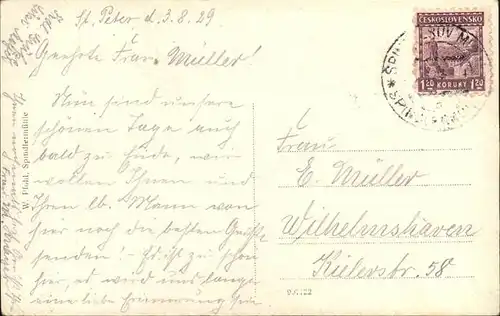 St. Peter d. 3.8.29
Geehrte Frau Müller!
Nun sind unsere
schönen Tage auch
bald zu Ende, wir
wollen Ihnen und
Ihren lb. Mann von
hier noch die besten Grüße
senden! - Es ist zu schön
hier, es wird uns lange
eine liebe Erinnerung sein
W. Pfohl, Spindlermühle
ČESKOSLOVENSKO
1.20 KORUNY 1.20
Frau
E. Müller
Wilhelmshaven
Kielerstr. 58